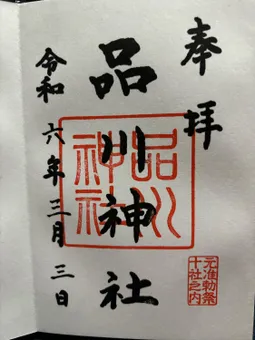 奉拝
品川神社
令和六年三月三日
品川神社
元准勅祭
十社之内